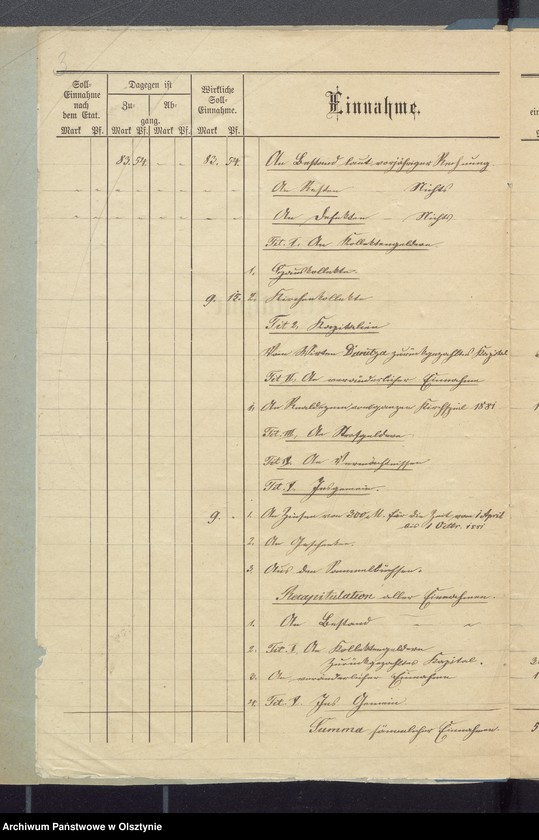 3
Soll-
Einnahme
nach
dem Etat.
Mark Pf.
Dagegen ist
Zu- Ab-
gang.
Mark Pf. Mark Pf.
Wirkliche
Soll-
Einnahme.
Mark Pf.
Einnahme.
83. 54. - - 83. 54. An Bestand laut vorjähriger Rechnung
An Resten Nichts
An Defekten - Nichts
Tit. I. An Kollektengeldern
1. Hauskollekte.
9. 15. 2. Kirchenkollekte
Tit 2. Kapitalien
Vom Wirten zurückgezahltes Kapital
Tit II. An veränderlicher Einnahme
1. An Kirchspiel 1881
Tit. III. An Strafgeldern
Tit IV. An Vermächtnissen
Tit. V. Insgemein.
9. - 1. An Zinsen von 300 M. für die Zeit vom 1 April
bis 1 Octbr. 1881
2. An Geschenken.
3. Aus den Sammelbüchsen.
Recapitulation aller Einnahmen.
1. An Bestand
2. Tit. I An Kollektengeldern
Zurückgezahltes Kapital.
3. An veränderlicher Einnahme
4. Tit V. Ins Gemein
Summa sämmtlicher Einnahmen.
Archiwum Państwowe w Olsztynie